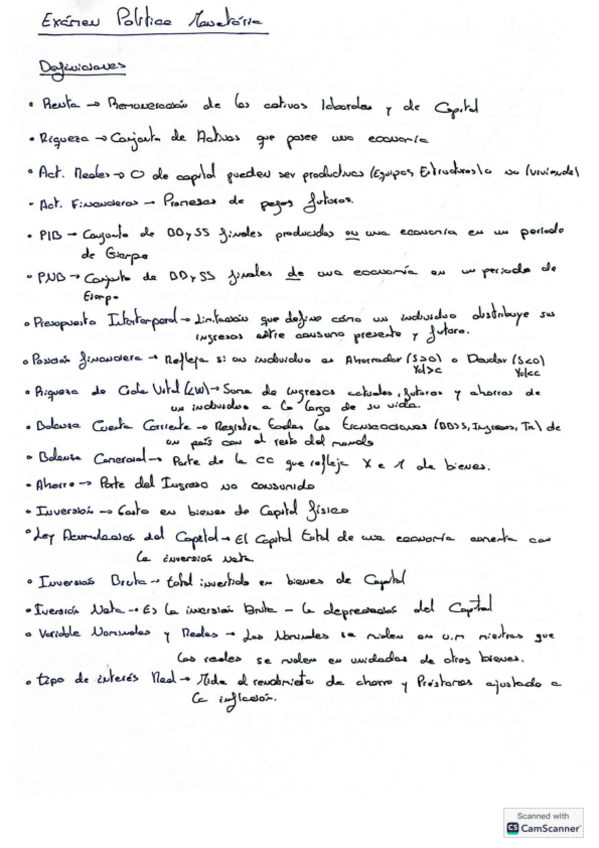 Exámen Política Monetária
Definiciones
• Renta → Remuneración de los activos laborales y de Capital
• Riqueza → Conjunto de Activos que posee una economía
• Act. Reales → O de capital pueden ser productivos (Equipos, Estructuras) o no (vivienda)
• Act. Financieros → Promesas de pagos futuros.
• PIB → Conjunto de BB y SS finales producidos en una economía en un periodo
de tiempo
• PNB → Conjunto de BB y SS finales de una economía en un periodo de
tiempo
• Presupuesto Intertemporal → Limitación que define cómo un individuo distribuye sus
ingresos entre consumo presente y futuro.
• Posición financiera → Refleja si un individuo es Ahorrador (S>0) o Deudor (S<0)
Y01>c Y01<c
• Riqueza de Ciclo Vital (LW) → Suma de ingresos actuales, futuros y ahorros de
un individuo a lo largo de su vida.
• Balanza Cuenta Corriente → Registra todas las transacciones (BBSS, Ingresos, Tr) de
un país con el resto del mundo
• Balanza Comercial → Parte de la CC que refleja X e I de bienes.
• Ahorro → Parte del Ingreso no consumido
• Inversión → Gasto en bienes de Capital físico
• Ley Acumulación del Capital → El Capital total de una economía aumenta con
la inversión neta
• Inversión Bruta → total invertido en bienes de Capital
• Iversión Neta → Es la inversión Bruta - la depreciación del Capital
• Variable Nominales y Reales → Las Nominales se miden en u.m mientras que
las reales se miden en unidades de otros bienes.
• tipo de interés Real → Mide el rendimiento de ahorro y Préstamos ajustado a
la inflación.
Scanned with
CS CamScanner